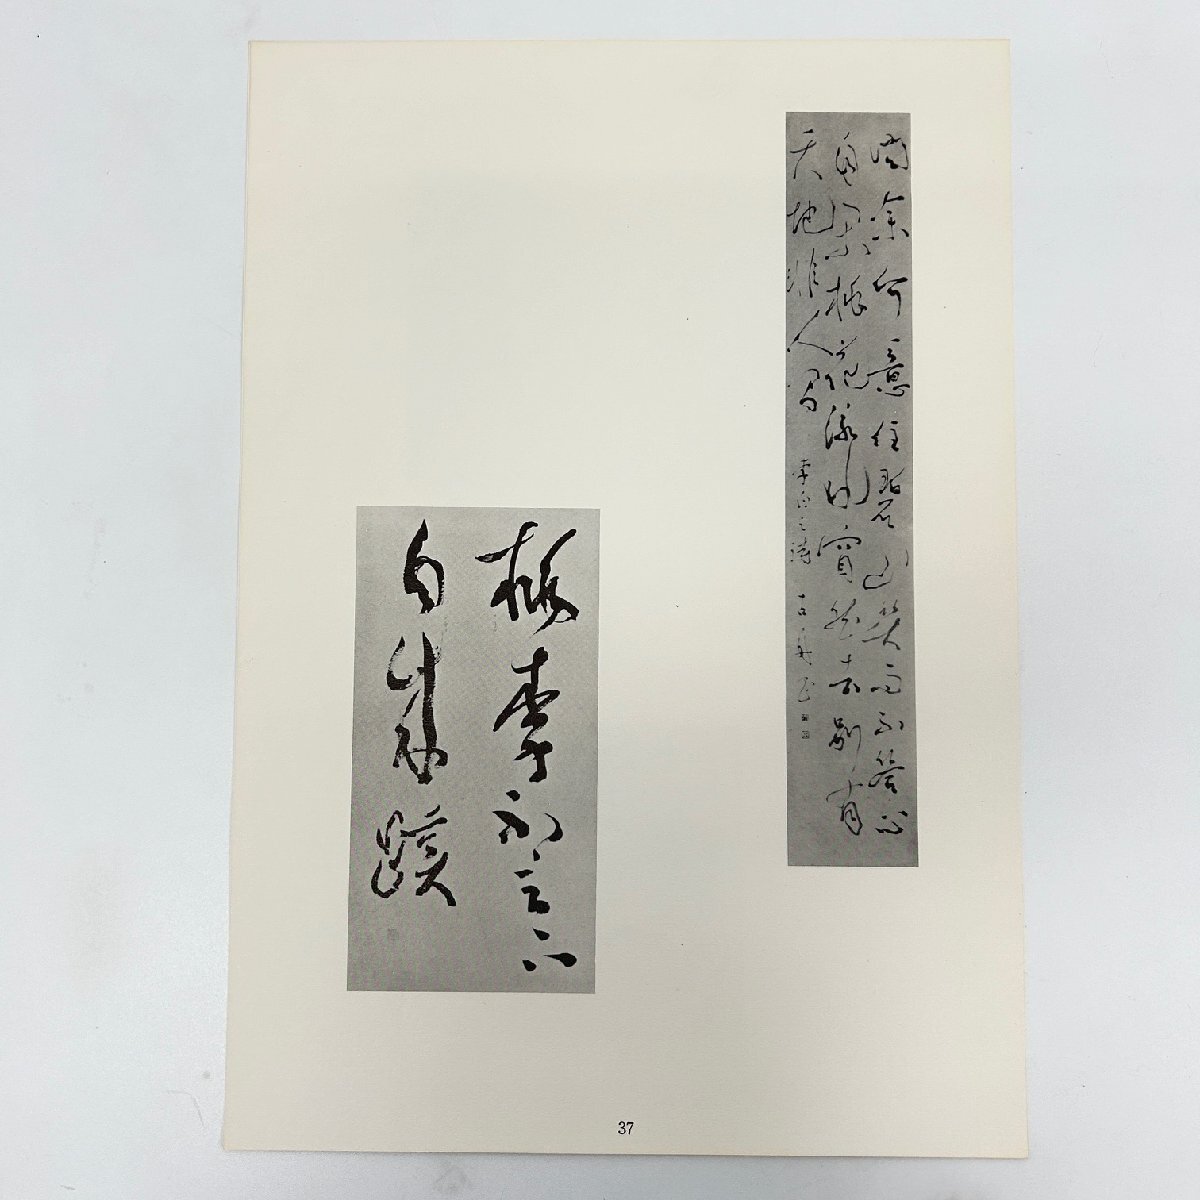 問余何意住碧山笑而不答心
自閑桃花流水窅然去別有
天地非人間
李白之詩
桃李不言下
自成蹊
37